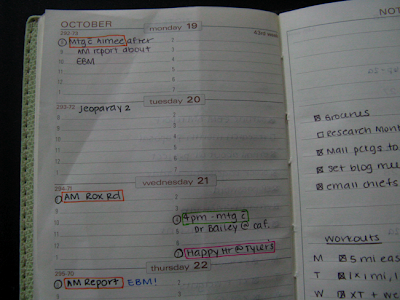 OCTOBER
monday 19
292-73
43rd week
Mtg c Aimee after
AM report about
EBM
tuesday 20
293-72
Jeopardy 2
wednesday 21
294-71
AM Rox Rd
4pm - mtg c
Dr Bailey @ caf.
Happy Hr @ Tyler's
thursday 22
295-70
AM Report EBM!
NOT
Groceries
Research Mont
Mail pckgs to
Set blog mu
email chiefs
Workouts
M 5 mi eas
T 1x1 mi, 1
W XT + we